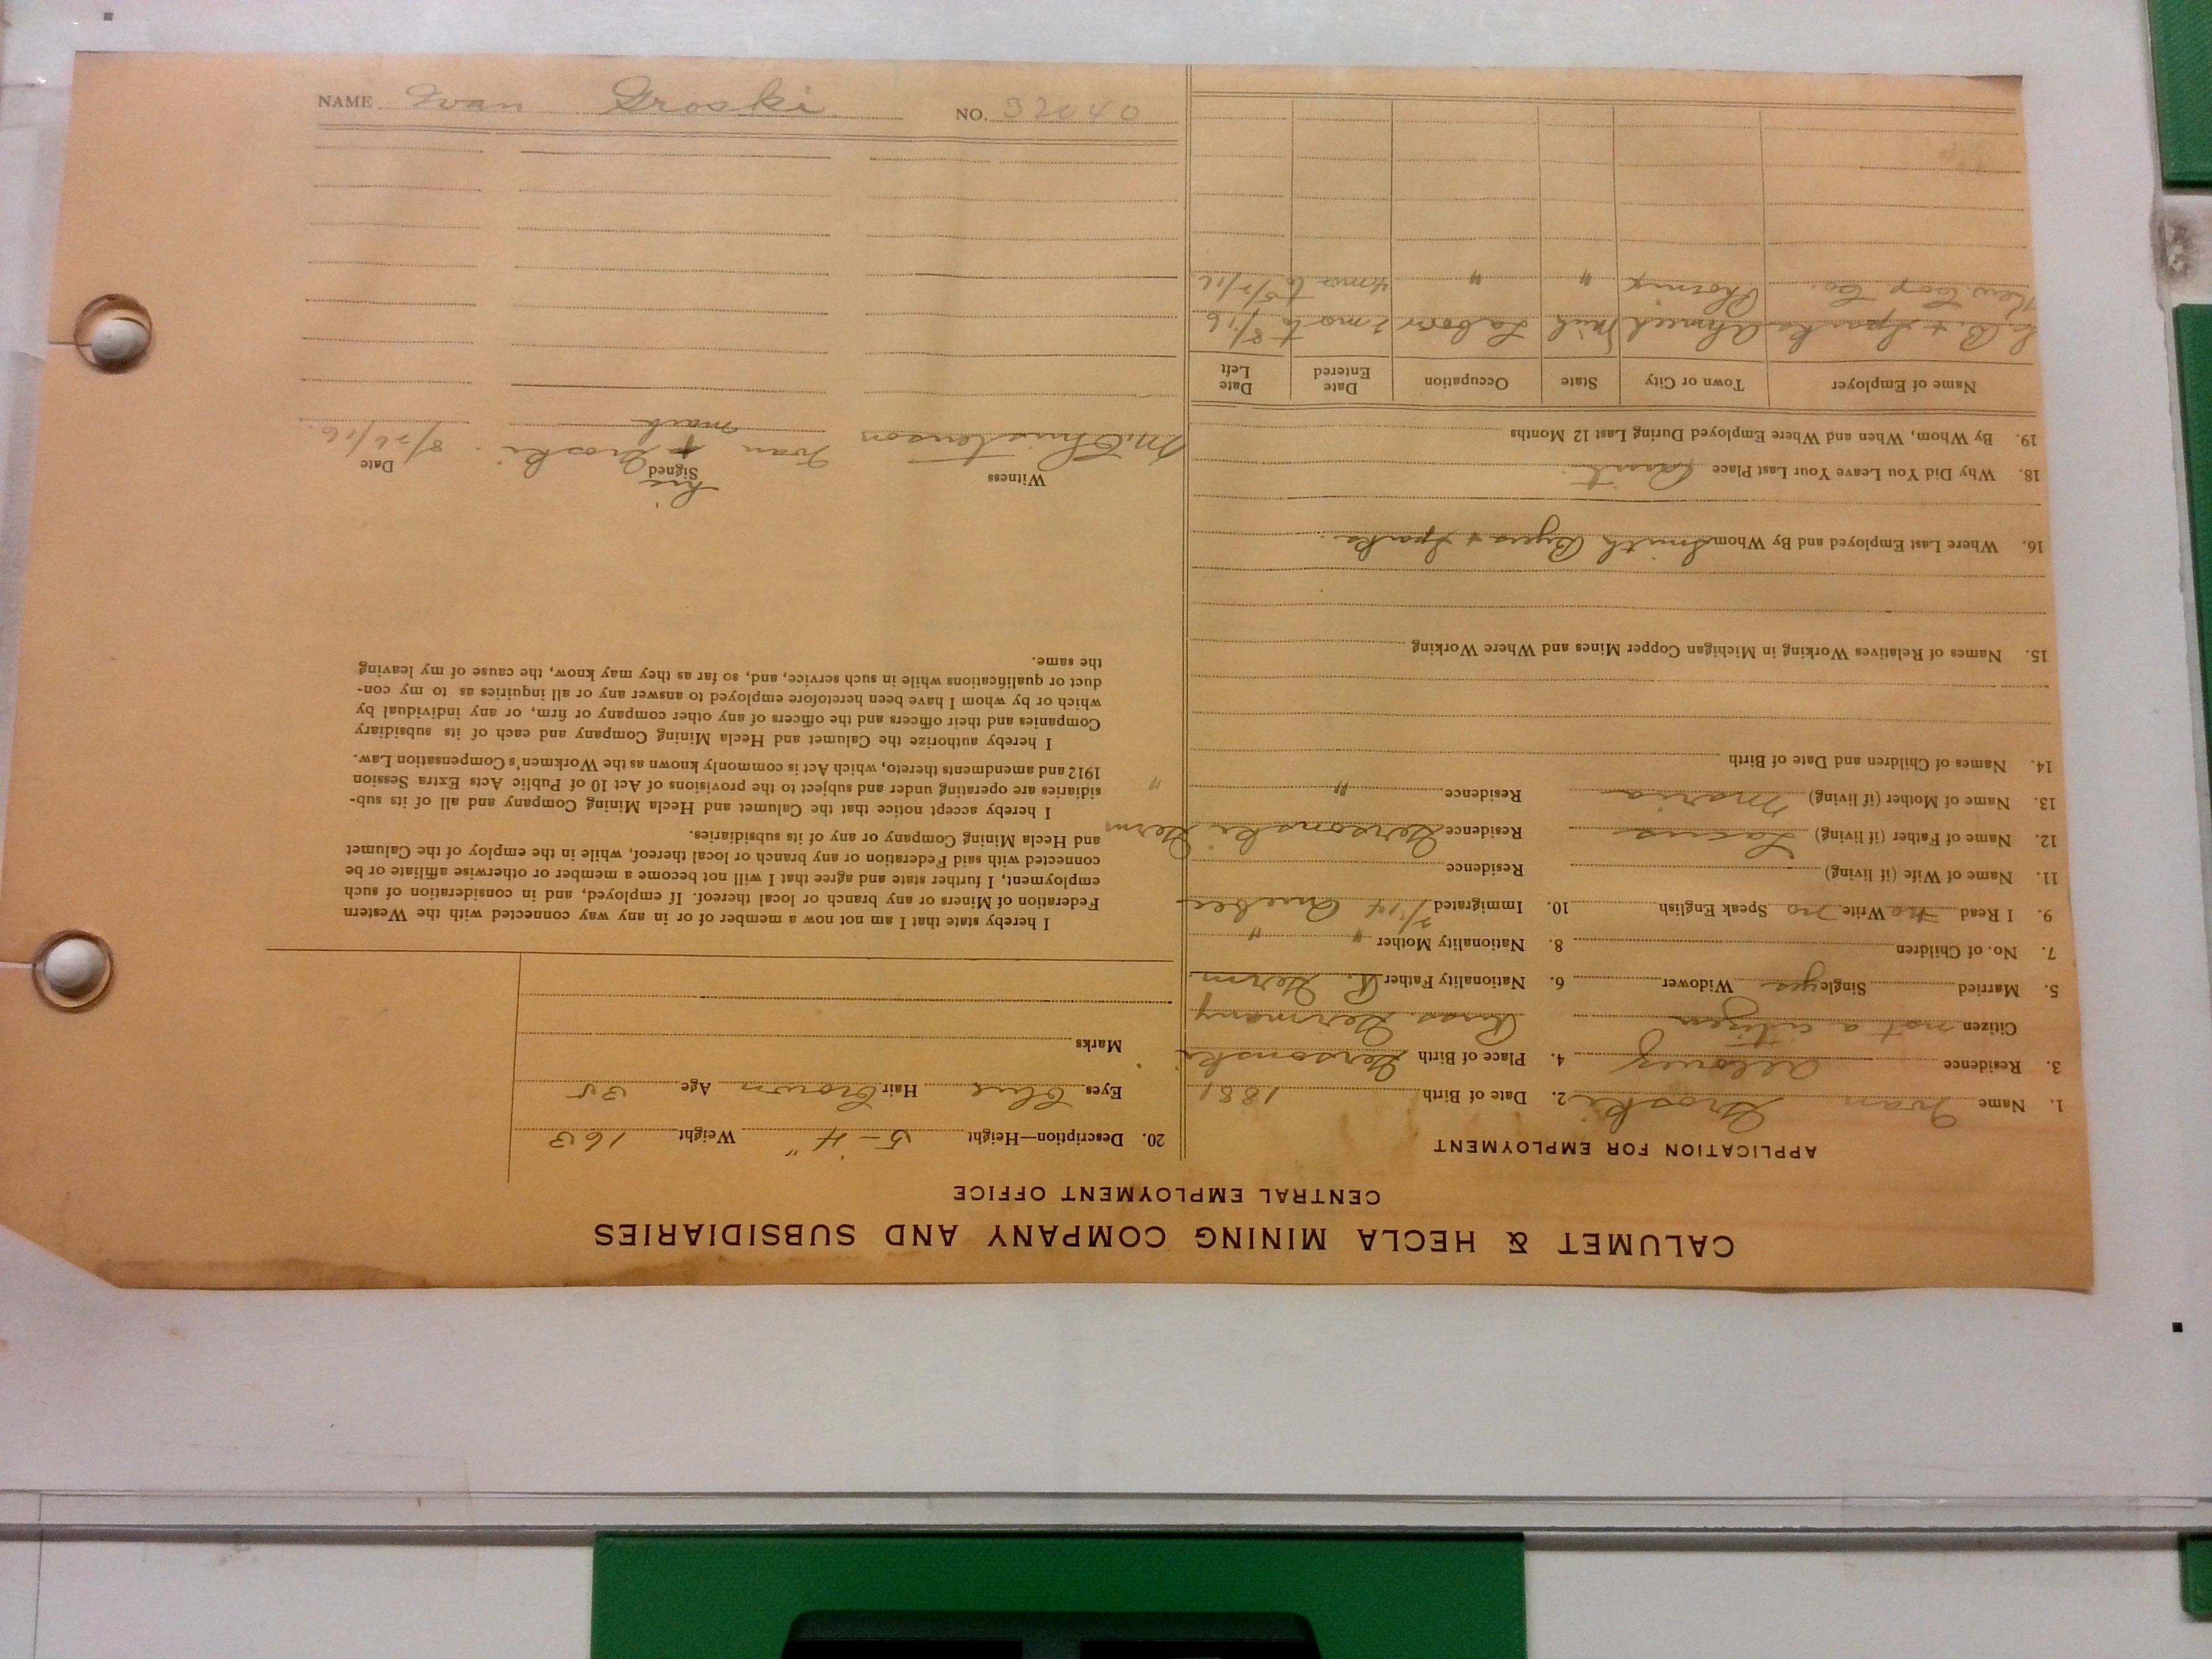 CALUMET & HECLA MINING COMPANY AND SUBSIDIARIES
CENTRAL EMPLOYMENT OFFICE
APPLICATION FOR EMPLOYMENT
1. Name Ivan Groski 2. Date of Birth 1881
3. Residence Allouez 4. Place of Birth
Citizen not a citizen Russ. Germany
5. Married Single yes Widower 6. Nationality Father R. Germ
7. No. of Children 8. Nationality Mother " "
9. I Read no Write no Speak English 10. Immigrated 2/14 Quebec
11. Name of Wife (if living) Residence
12. Name of Father (if living) Residence Germ
13. Name of Mother (if living) Maria Residence " "
14. Names of Children and Date of Birth
15. Names of Relatives Working in Michigan Copper Mines and Where Working
16. Where Last Employed and By Whom Smith Byers & Sparks.
18. Why Did You Leave Your Last Place
19. By Whom, When and Where Employed During Last 12 Months
Name of Employer Town or City State Occupation Date Entered Date Left
S. B. + Sparks Ahmeek Mich Labor 2 mo to 8/16
Kew. Cop Co. Phoenix " " 4 mo to 5/16
20. Description—Height 5-4" Weight 163
Eyes blue Hair brown Age 35
Marks
I hereby state that I am not now a member of or in any way connected with the Western
Federation of Miners or any branch or local thereof. If employed, and in consideration of such
employment, I further state and agree that I will not become a member or otherwise affiliate or be
connected with said Federation or any branch or local thereof, while in the employ of the Calumet
and Hecla Mining Company or any of its subsidiaries.
I hereby accept notice that the Calumet and Hecla Mining Company and all of its sub-
sidiaries are operating under and subject to the provisions of Act 10 of Public Acts Extra Session
1912 and amendments thereto, which Act is commonly known as the Workmen's Compensation Law.
I hereby authorize the Calumet and Hecla Mining Company and each of its subsidiary
Companies and their officers and the officers of any other company or firm, or any individual by
which or by whom I have been heretofore employed to answer any or all inquiries as to my con-
duct or qualifications while in such service, and, so far as they may know, the cause of my leaving
the same.
Witness Signed Date
his
M. Christenson Ivan + Groski. 8/26/16.
mark
NAME Ivan Groski NO. 32040